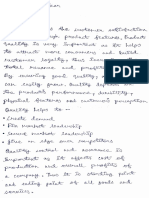 is the customer satisfaction
through product features. Product
quality is very important as it helps
to attract more customers and build
customer loyalty, this
sales, revenue and profits
By ensuring good quality,
can easily grow. Quality
the product performance, durability,
physical features and customer perception.
Quality helps to -
• Create demand
• Fix market leadership
• Secure market leadership
• Give an edge over competitors
Quality control and assurance is
important as it affects cost of
production and overall profits of
a company. Thus it is starting point
and selling point of all goods and
services.